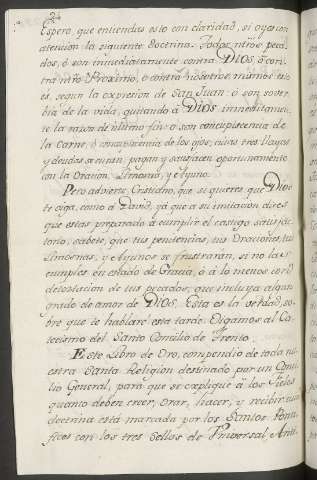 24
Espero, que entiendas esto con claridad, si oyes con
atencion la siguiente doctrina. Todos ntrôs peca-
dos, ó son inmediatamente contra DIOS, ó con-
tra ntrô Proximo, ó contra nosotros mismos: esto
es, segun la expresion de San Juan: ó son sover-
bia de la vida, quitando á DIOS inmediatamen-
te la razon de ultimo fin: o son concupiscencia de
la carne, ó concupiscencia de los ojos; cuias tres llagas
y deudas se curan, pagan y satisfacen oportunamente
con la Oracion, Limosna, y Ayuno.
Pero advierte, Cristiano, que si quieres, que DIOS
te oiga, como á David, ya que á su imitacion dices
que estas preparado á cumplir el castigo satisfac-
torio, sabete, que tus penitencias, tus Oraciones, tus
Limosnas, y Ayunos se frustrarán, si no las
cumples en estado de Gracia, ó á lo menos con
detestacion de tus pecados, que incluya algun
grado de amor de DIOS. Esta es la verdad, so-
bre que te hablaré esta tarde. Oigamos al Ca-
tecismo del Santo Concilio de Trento.
Este Libro de Oro, compendio de toda nu-
estra Santa Religion destinado por un Conci-
lio General, para que se explique á los Fieles
quanto deben creer, orar, hacer, y recibir; cuia
doctrina está marcada por los Santos Ponti-
fices con los tres sellos de Universal, Anti-